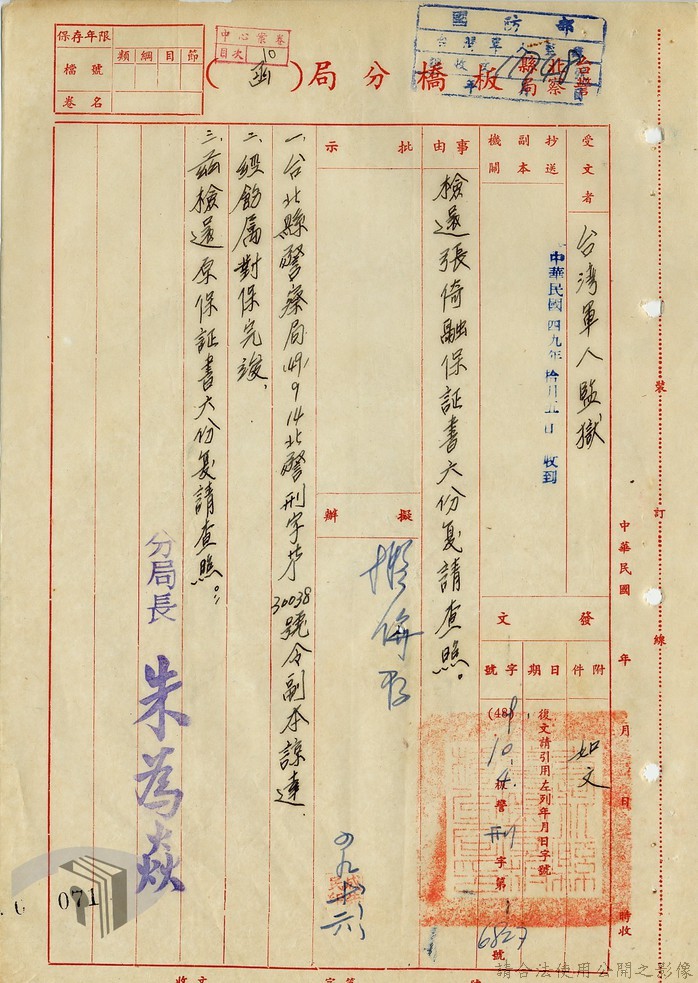 保存年限
檔號
卷名
類 綱 目 節
中心案卷
目次 10
國防部
台灣軍人監獄
台北縣警察局板橋分局(函)
受文者
台灣軍人監獄
抄送副本機關
中華民國四九年拾月五日 收到
事由
檢還張倚融保証書六份复請查照。
批示
擬辦
擬併存
四九十六
發文
附件
如文
日期
字號
復文請引用左列年月日字號
(48)
9. 10. 4.
板警刑字第
6827
號
一、台北縣警察局(49)9 14北警刑字第30038號令副本諒達.
二、經飭属對保完竣,
三、茲檢還原保証書六份复請查照。
分局長 朱為焱
中華民國 年 月 日 時收
裝 訂 線
071
收文 字第 號
請合法使用公開之影像